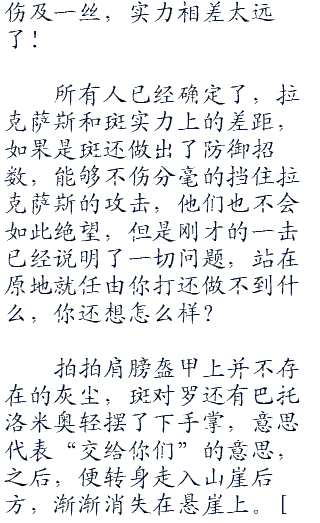 伤及一丝，实力相差太远
了！
所有人已经确定了，拉
克萨斯和斑实力上的差距，
如果是斑还做出了防御招
数，能够不伤分毫的挡住拉
克萨斯的攻击，他们也不会
如此绝望，但是刚才的一击
已经说明了一切问题，站在
原地就任由你打还做不到什
么，你还想怎么样？
拍拍肩膀盔甲上并不存
在的灰尘，斑对罗还有巴托
洛米奥轻摆了下手掌，意思
代表“交给你们”的意思，
之后，便转身走入山崖后
方，渐渐消失在悬崖上。[